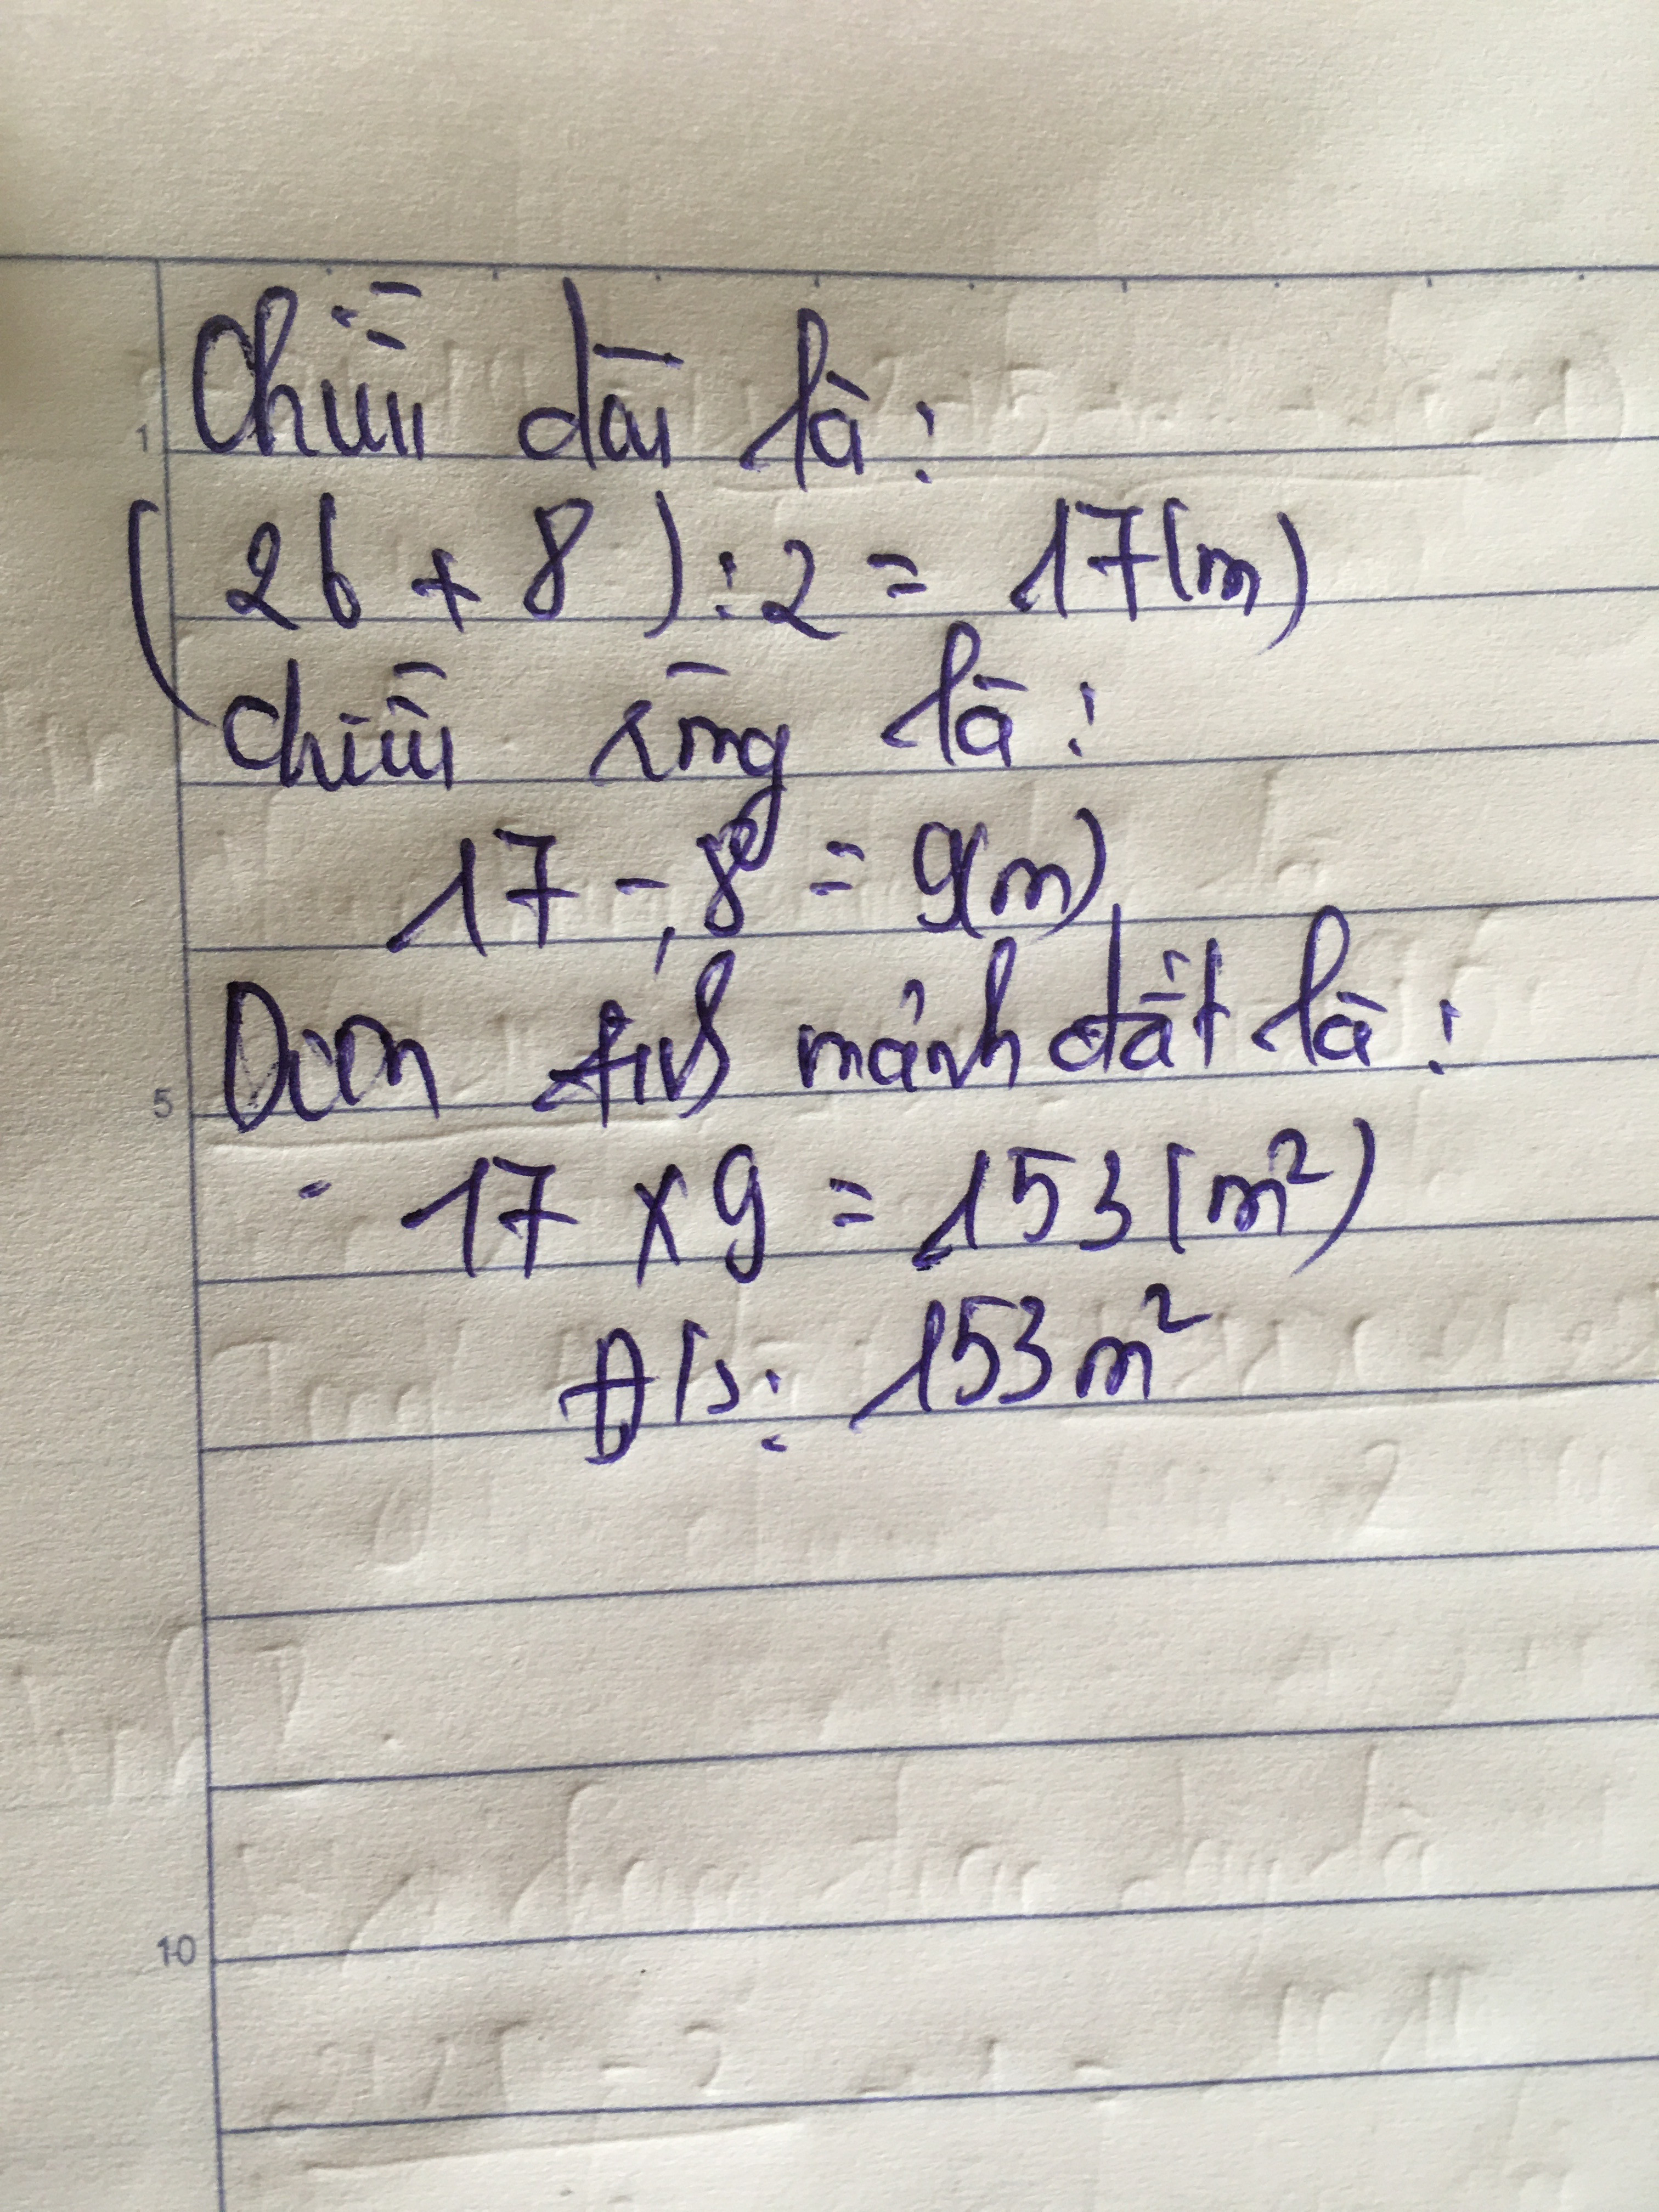 Chiều dài là:
(26 + 8) : 2 = 17(m)
chiều rộng là:
17 - 8 = 9(m)
Diện tích mảnh đất là:
17 x 9 = 153(m²)
Đ/s: 153m²
1
5
10